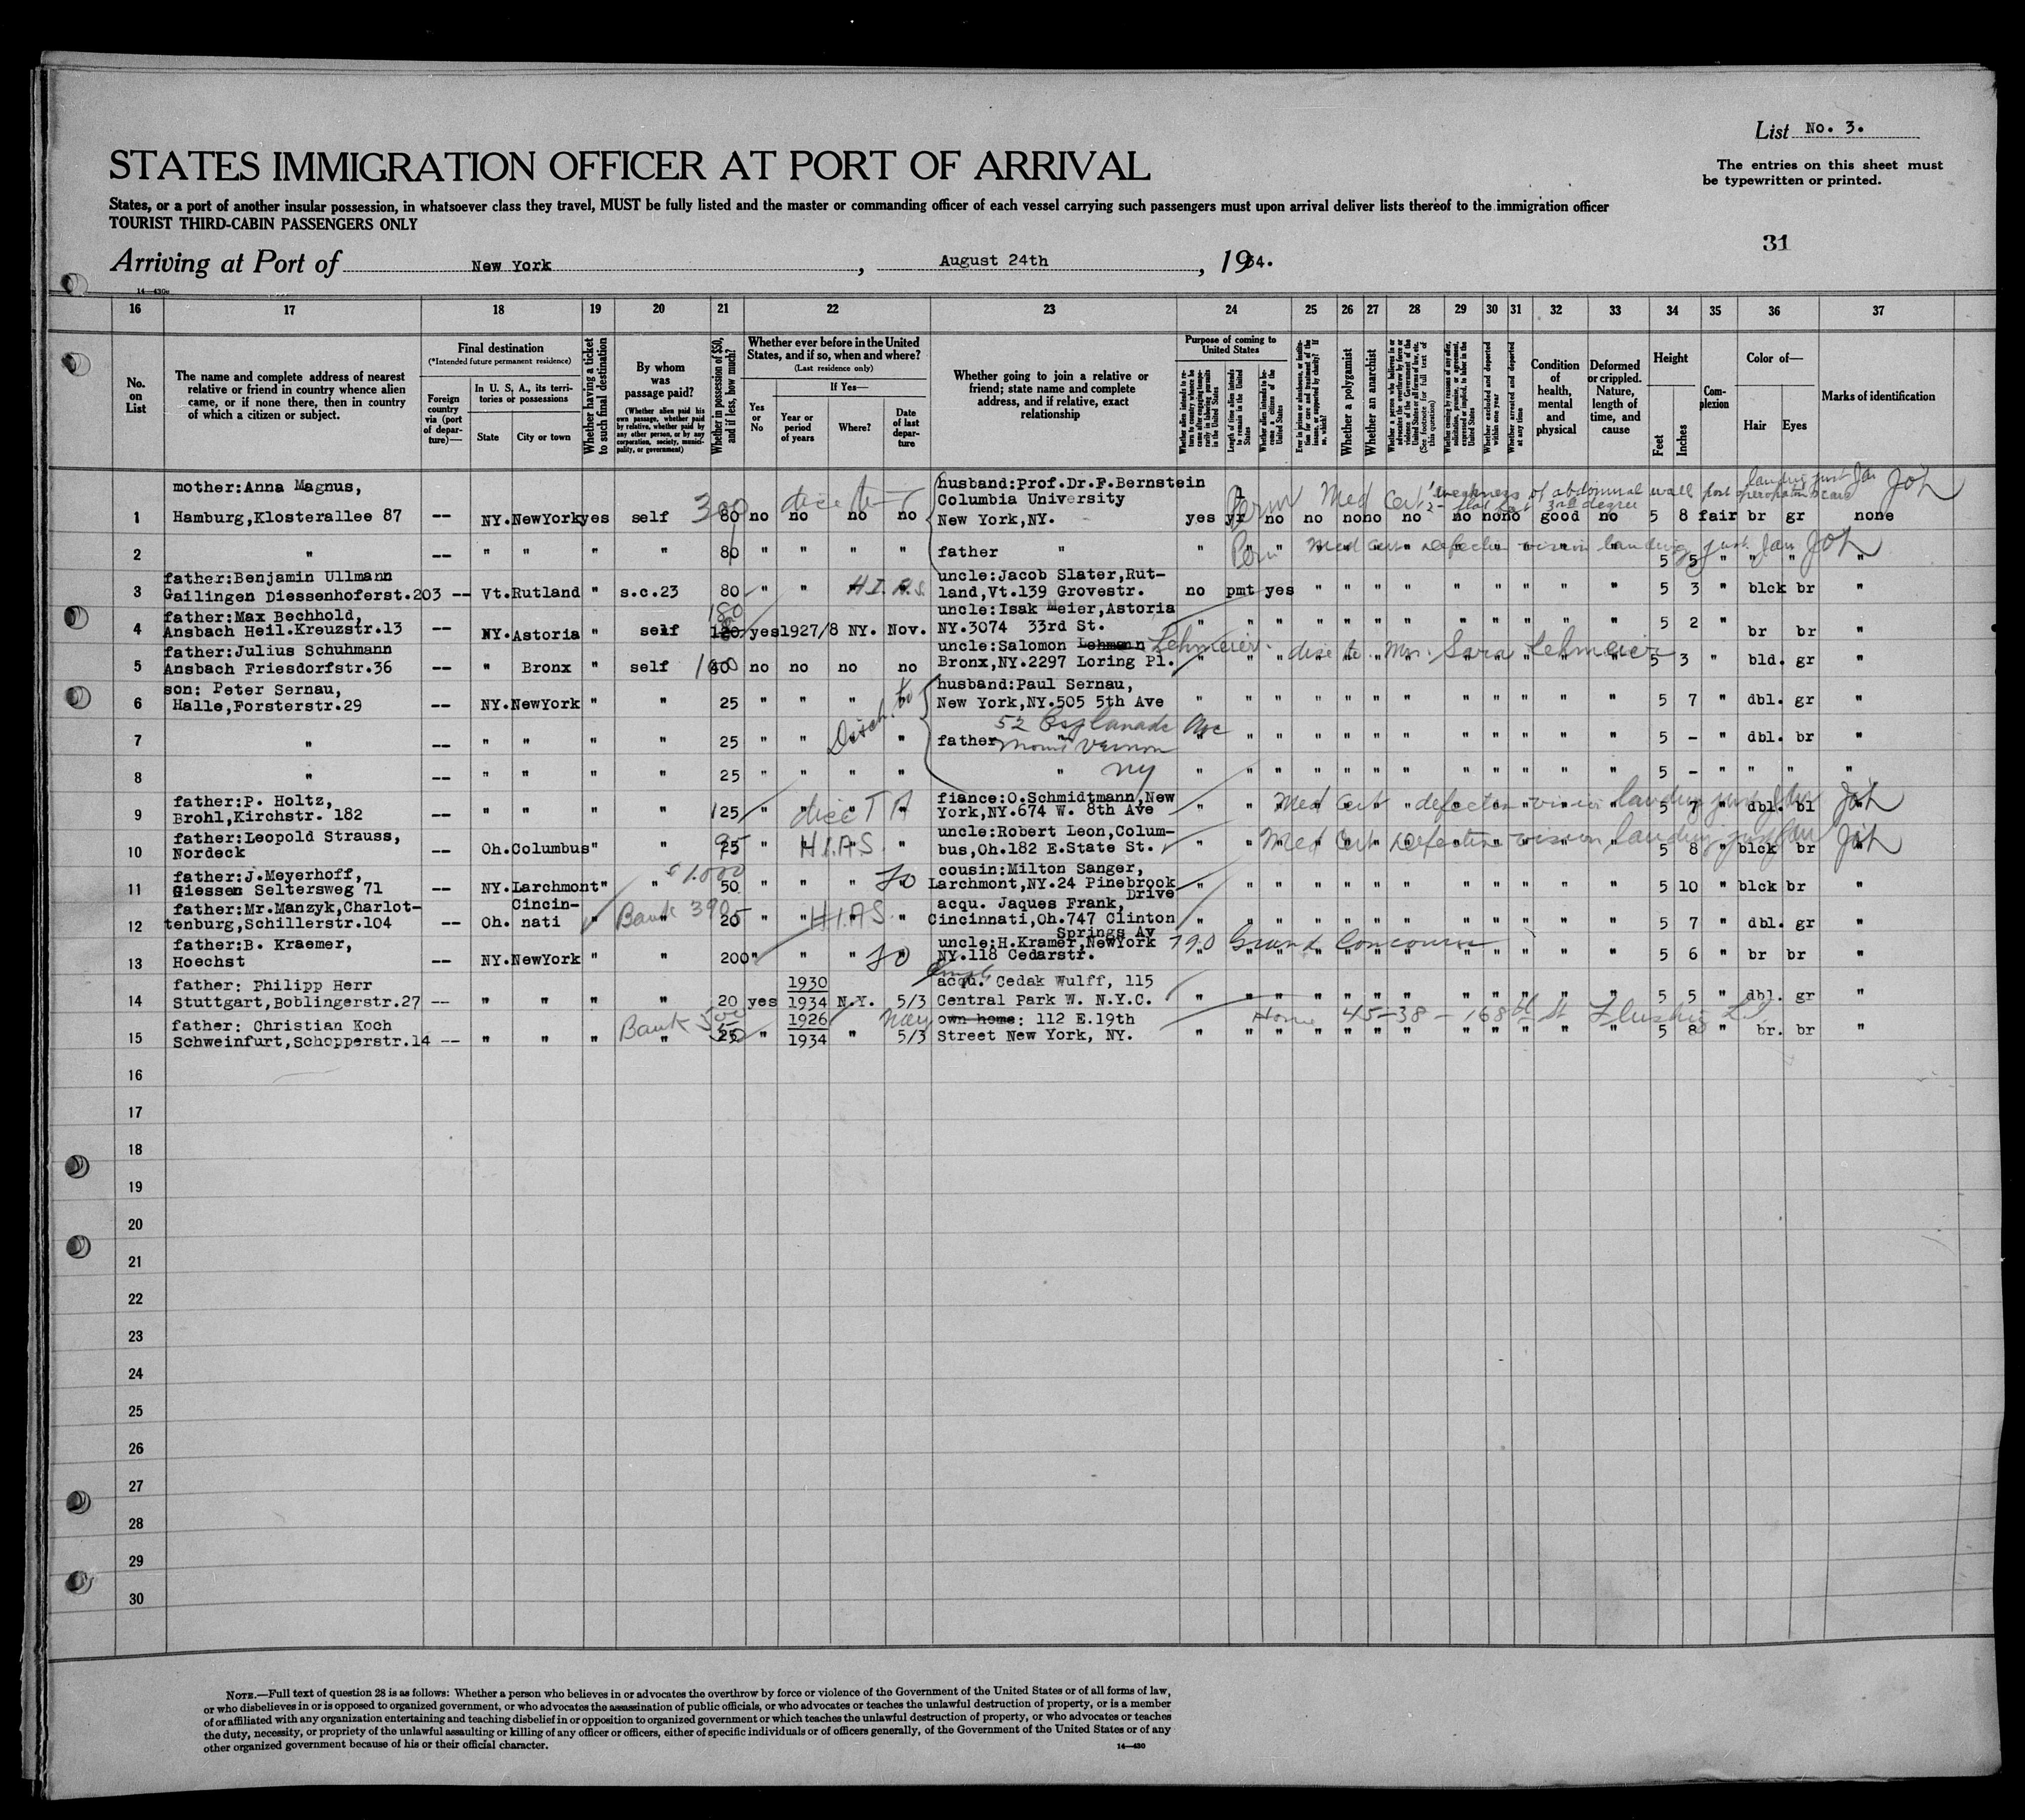 List No. 3.
STATES IMMIGRATION OFFICER AT PORT OF ARRIVAL
The entries on this sheet must
be typewritten or printed.
States, or a port of another insular possession, in whatsoever class they travel, MUST be fully listed and the master or commanding officer of each vessel carrying such passengers must upon arrival deliver lists thereof to the immigration officer
TOURIST THIRD-CABIN PASSENGERS ONLY
31
Arriving at Port of New York, August 24th, 1934.
16 17 18 19 20 21 22 23 24 25 26 27 28 29 30 31 32 33 34 35 36 37
No. on List
The name and complete address of nearest relative or friend in country whence alien came, or if none there, then in country of which a citizen or subject.
Final destination
(*Intended future permanent residence)
Foreign country via (port of departure)—
In U. S. A., its territories or possessions
State
City or town
Whether having a ticket to such final destination
By whom was passage paid?
(Whether alien paid his own passage, whether paid by relative, whether paid by any other person, or by any corporation, society, municipality, or government)
Whether in possession of $50, and if less, how much?
Whether ever before in the United States, and if so, when and where?
(Last residence only)
Yes or No
If Yes—
Year or period of years
Where?
Date of last departure
Whether going to join a relative or friend; state name and complete address, and if relative, exact relationship
Purpose of coming to United States
Length of time alien intends to remain in the United States
Whether alien intends to become a citizen of the United States
Whether a polygamist
Whether an anarchist
Whether excluded and deported within one year
Whether arrested and deported at any time
Condition of health, mental and physical
Deformed or crippled. Nature, length of time, and cause
Height
Feet
Inches
Complexion
Color of—
Hair
Eyes
Marks of identification
mother:Anna Magnus, husband:Prof.Dr.F.Bernstein
Columbia University
1 Hamburg,Klosterallee 87 -- NY.NewYork yes self 300 80 no no no no New York,NY. yes 1 yr no no no no no no no no good no 5 8 fair br gr none
Perm Med Cert weakness of abdominal wall
2 " -- " " " " 80 " " " " father " " " " " " " " " " " " " 5 5 " " " "
father:Benjamin Ullmann uncle:Jacob Slater,Rut-
3 Gailingen Diessenhoferst.203 -- Vt.Rutland " s.c.23 80 " " H.I.A.S. land,Vt.139 Grovestr. no pmt yes " " " " " " " " " 5 3 " blck br "
father:Max Bechhold, 180 uncle:Isak Meier,Astoria
4 Ansbach Heil.Kreuzstr.13 -- NY.Astoria " self 120 yes 1927/8 NY. Nov. NY.3074 33rd St. " " " " " " " " " " " " 5 2 " br br "
father:Julius Schuhmann uncle:Salomon Lehmann Lehmeier. disc to Mrs. Sara Lehmeier
5 Ansbach Friesdorfstr.36 -- " Bronx " self 40 no no no no Bronx,NY.2297 Loring Pl. " " " " " " " " " " " " 5 3 " bld. gr "
son: Peter Sernau, husband:Paul Sernau,
6 Halle,Forsterstr.29 -- NY.NewYork " " 25 " " " " New York,NY.505 5th Ave " " " " " " " " " " " " 5 7 " dbl. gr "
Disch. to 52 Esplanade Ave
7 " -- " " " " 25 " " " father " " " " " " " " " " " " " 5 - " dbl. br "
Mount Vernon
8 " -- " " " " 25 " " " " " NY " " " " " " " " " " " " 5 - " " " "
father:P. Holtz, fiance:O.Schmidtmann,New
9 Brohl,Kirchstr. 182 -- " " " " 125 " " " " York,NY.674 W. 8th Ave Med Cert defective vision landing 5 7 " dbl. bl "
father:Leopold Strauss, uncle:Robert Leon,Colum-
10 Nordeck -- Oh.Columbus " " 25 " H.I.A.S. " bus,Oh.182 E.State St. Med Cert Defective vision landing 5 8 " blck br "
father:J.Meyerhoff, $1.000 cousin:Milton Sanger,
11 Giessen Seltersweg 71 -- NY.Larchmont " " 50 " " " Larchmont,NY.24 Pinebrook Drive " " " " " " " " " " " " 5 10 " blck br "
father:Mr.Manzyk,Charlot- Cincin- acqu. Jaques Frank,
12 tenburg,Schillerstr.104 -- Oh. nati " Bank 390 20 " H.I.A.S. " Cincinnati,Oh.747 Clinton Springs Av " " " " " " " " " " " " 5 7 " dbl. gr "
father:B. Kraemer, uncle:H.Kramer,NewYork 790 Grand Concourse
13 Hoechst -- NY.NewYork " " 200 " " " NY.118 Cedarstr. " " " " " " " " " " " " 5 6 " br br "
father: Philipp Herr 1930 acqu. Cedak Wulff, 115
14 Stuttgart,Boblingerstr.27 -- " " " " 20 yes 1934 N.Y. 5/3 Central Park W. N.Y.C. " " " " " " " " " " " " 5 5 " dbl. gr "
father: Christian Koch Bank 500 1926 May own home: 112 E.19th Home 45-38-168th St Flushing L.I.
15 Schweinfurt,Schopperstr.14 -- " " " " 25 " 1934 " 5/3 Street New York, NY. " " " " " " " " " " " " 5 8 " br. br "
16
17
18
19
20
21
22
23
24
25
26
27
28
29
30
NOTE.—Full text of question 28 is as follows: Whether a person who believes in or advocates the overthrow by force or violence of the Government of the United States or of all forms of law,
or who disbelieves in or is opposed to organized government, or who advocates the assassination of public officials, or who advocates or teaches the unlawful destruction of property, or is a member
of or affiliated with any organization entertaining and teaching disbelief in or opposition to organized government or which teaches the unlawful destruction of property, or who advocates or teaches
the duty, necessity, or propriety of the unlawful assaulting or killing of any officer or officers, either of specific individuals or of officers generally, of the Government of the United States or of any
other organized government because of his or their official character.
14—430